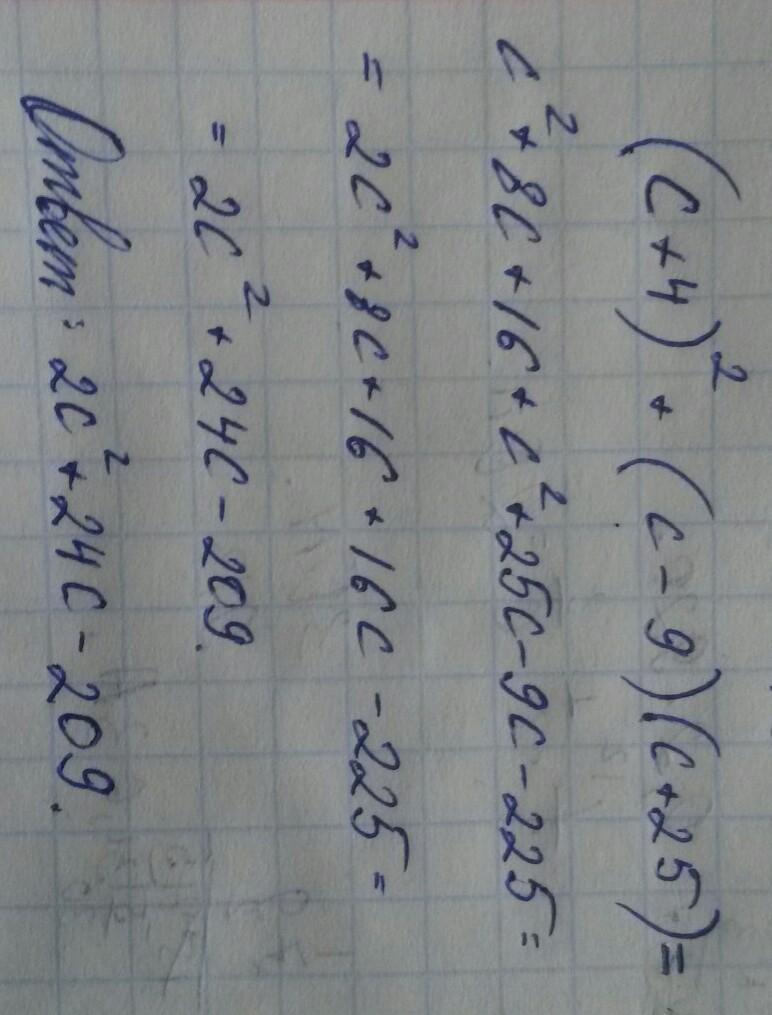 (c+4)² + (c-9)(c+25)=
c² + 8c + 16 + c² + 25c - 9c - 225 =
= 2c² + 8c + 16 + 16c - 225 =
= 2c² + 24c - 209.
Ответ: 2c² + 24c - 209.